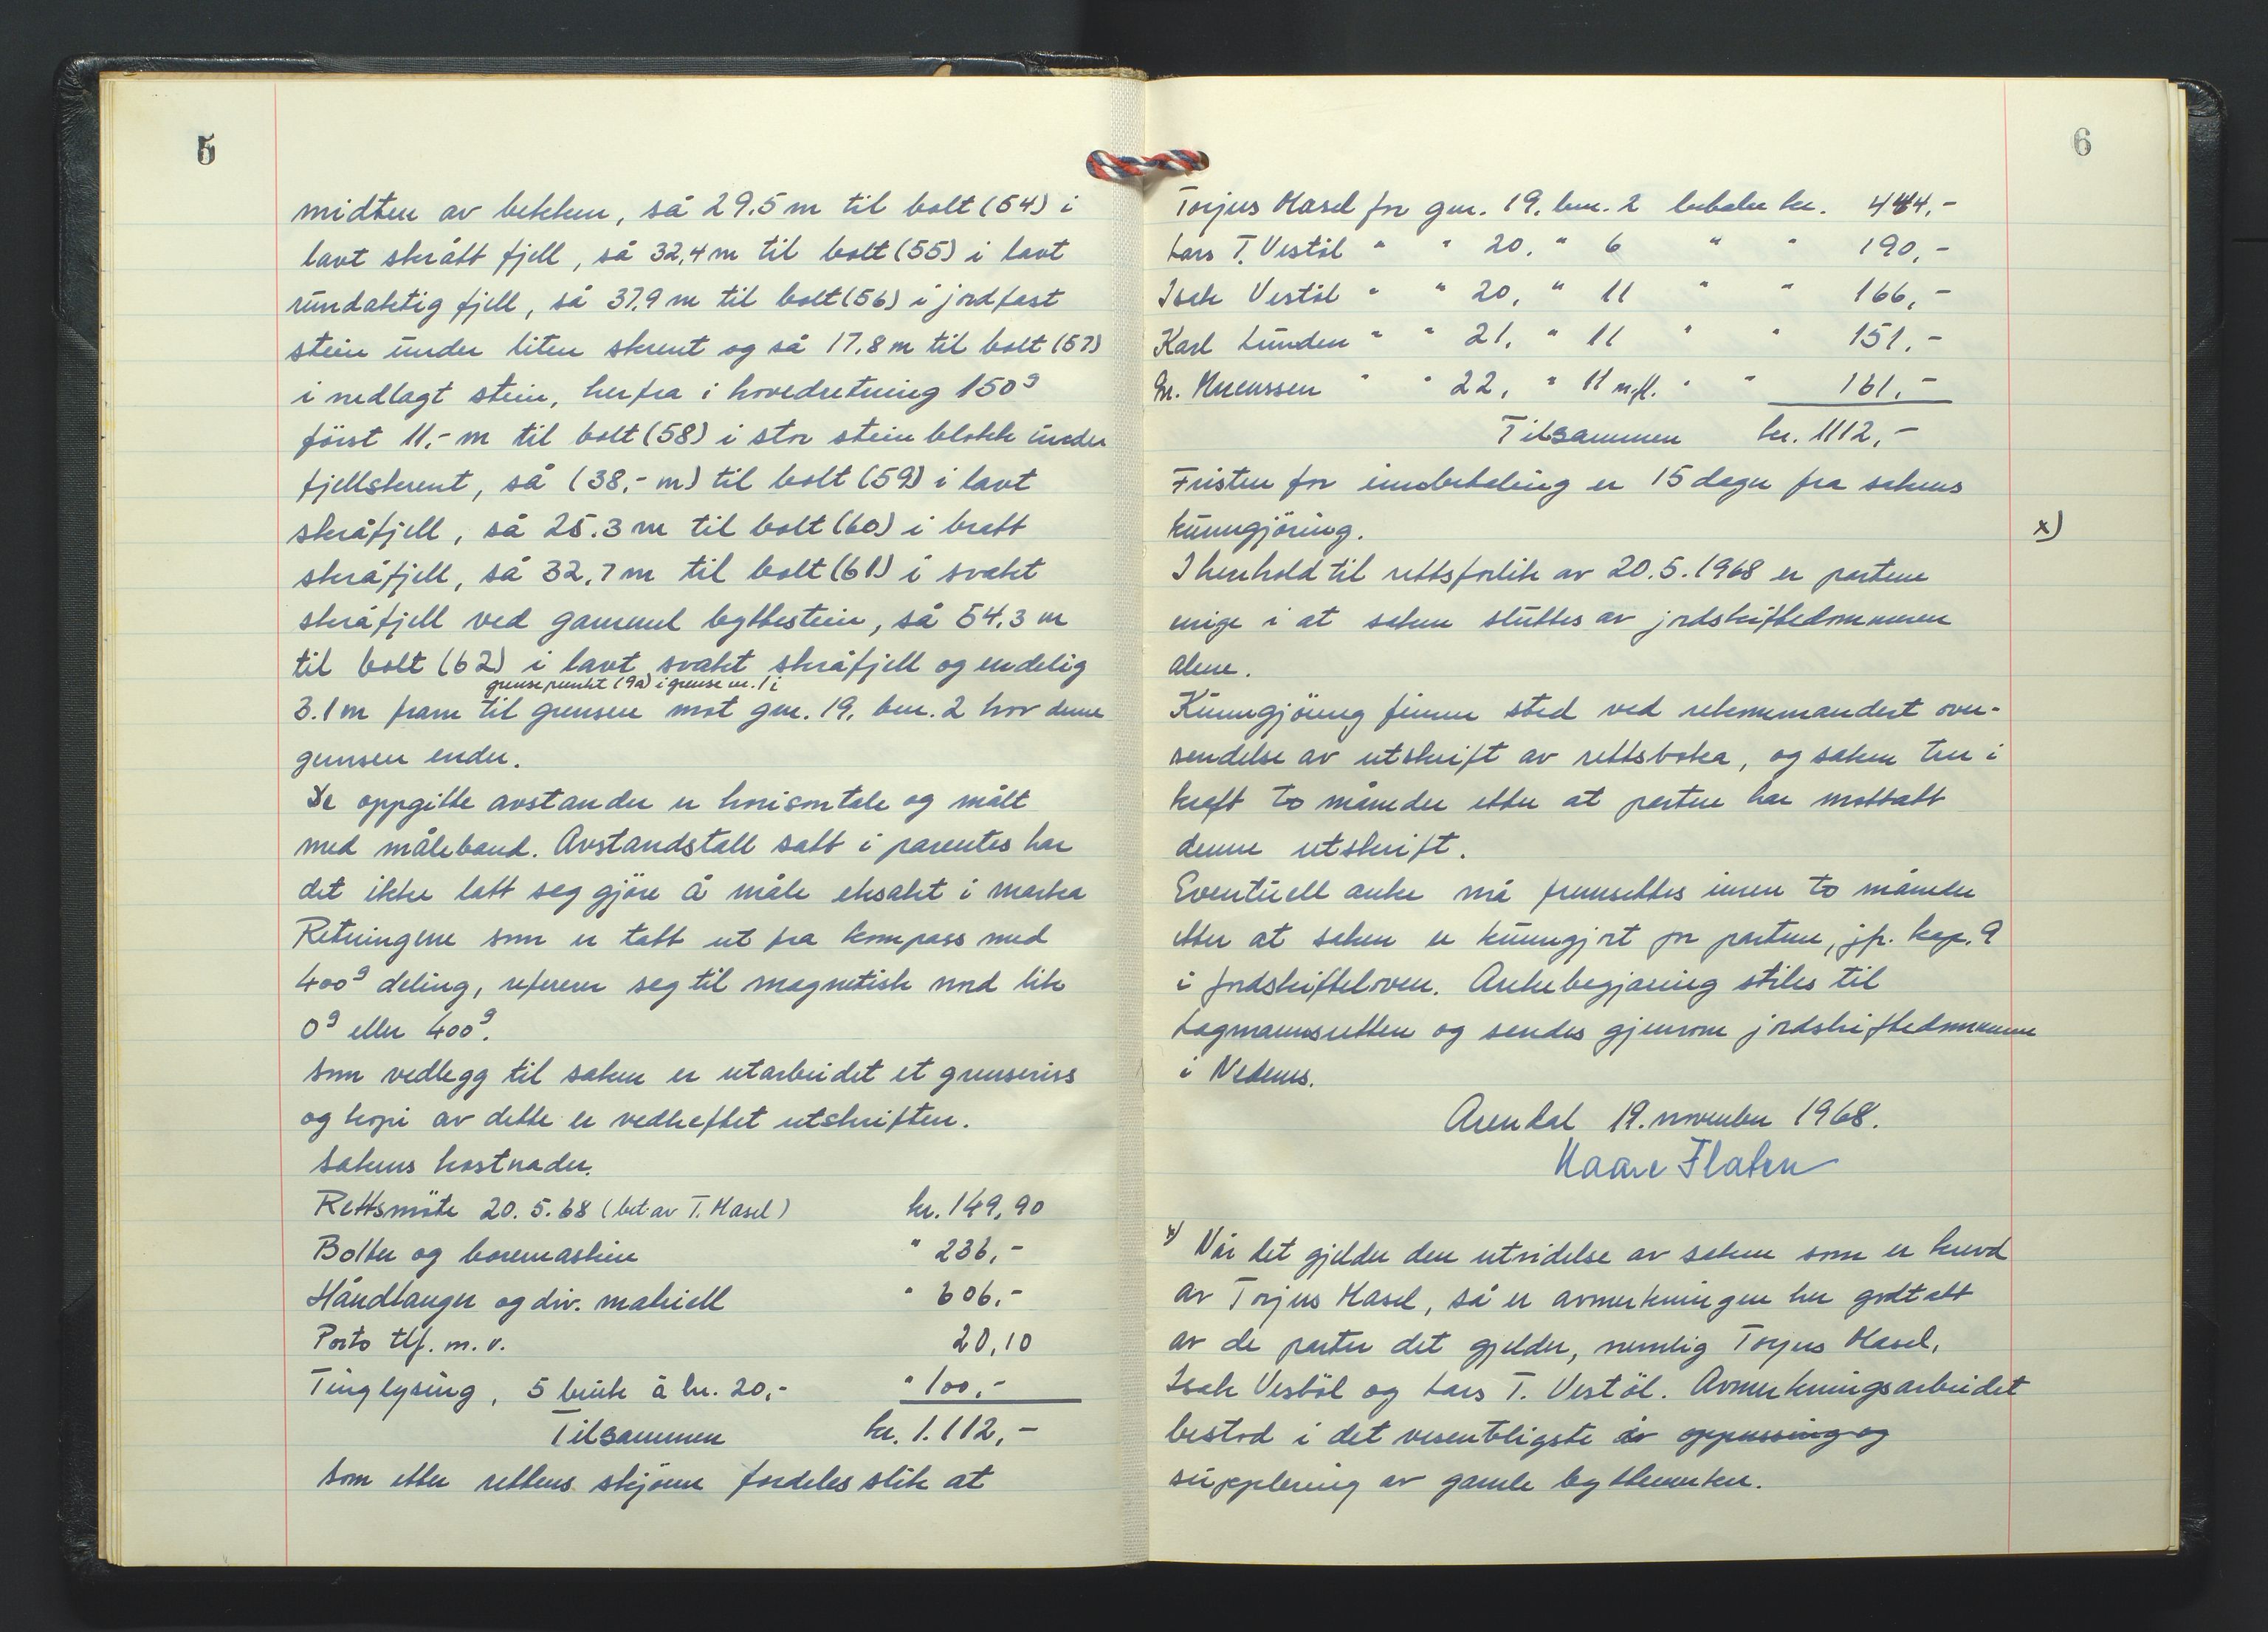 5
midten av bekken, så 29.5 m til bolt (54) i
lavt skrått fjell, så 32,4 m til bolt (55) i lavt
rundaktig fjell, så 37,9 m til bolt (56) i jordfast
stein under liten skrent og så 17.8 m til bolt (57)
i nedlagt stein, herfra i hovedretning 150g
först 11,- m til bolt (58) i stor steinblokk under
fjellskrent, så (38,- m) til bolt (59) i lavt
skråfjell, så 25.3 m til bolt (60) i bratt
skråfjell, så 32,7 m til bolt (61) i svakt
skråfjell ved gammel byttestein, så 54.3 m
til bolt (62) i lavt svakt skråfjell og endelig
grensepunkt (9a) i grense nr. 1 i
3.1 m fram til grensen mot gnr. 19, bnr. 2 hvor denne
grensen ender.
De oppgitte avstander er horisontale og målt
med måleband. Avstandstall satt i parentes har
det ikke latt seg gjöre å måle eksakt i marka
Retningene som er tatt ut fra kompass med
400g deling, referer seg til magnetisk nord lik
0g eller 400g.
Som vedlegg til saken er utarbeidet et grenseriss
og kopi av dette er vedheftet utskriften.
Sakens kostnader.
Rettsmöte 20.5.68 (bet av T. Hasel) kr. 149,90
Bolter og boremaskin " 236,-
Håndlanger og div. matriell " 606,-
Porto tlf. m.v. 20,10
Tinglysing, 5 bruk à kr. 20,- " 100,-
Tilsammen kr. 1.112,-
som etter rettens skjönn fordeles slik at
6
Torjus Hasel for gnr. 19, bnr. 2 betaler kr. 444,-
Lars T. Vestöl " " 20, " 6 " " 190,-
Isak Vestöl " " 20, " 11 " " 166,-
Karl Lunden " " 21, " 11 " " 151,-
" " 22, " 11 m.fl. " " 161,-
Tilsammen kr. 1112,-
Fristen for innbetaling er 15 dager fra sakens
kunngjöring. x)
I henhold til rettsforlik av 20.5.1968 er partene
enige i at saken sluttes av jordskiftedommeren
alene.
Kunngjöring finner sted ved rekommandert over-
sendelse av utskrift av rettsboka, og saken trer i
kraft to måneder etter at partene har mottatt
denne utskrift.
Eventuell anke må fremsettes innen to måneder
etter at saken er kunngjort for partene, jfr. kap. 9
i jordskifteloven. Ankebegjæring stiles til
Lagmannsretten og sendes gjennom jordskiftedommeren
i Nedenes.
Arendal 19. november 1968.
Kaare Flaten
x) Når det gjelder den utvidelse av saken som er krevd
av Torjus Hasel, så er avmerkningen her godtatt
av de parter det gjelder, nemlig Torjus Hasel,
Isak Vestöl og Lars T. Vestöl. Avmerkningsarbeidet
bestod i det vesentligste av oppussing og
supplering av gamle byttemerker.